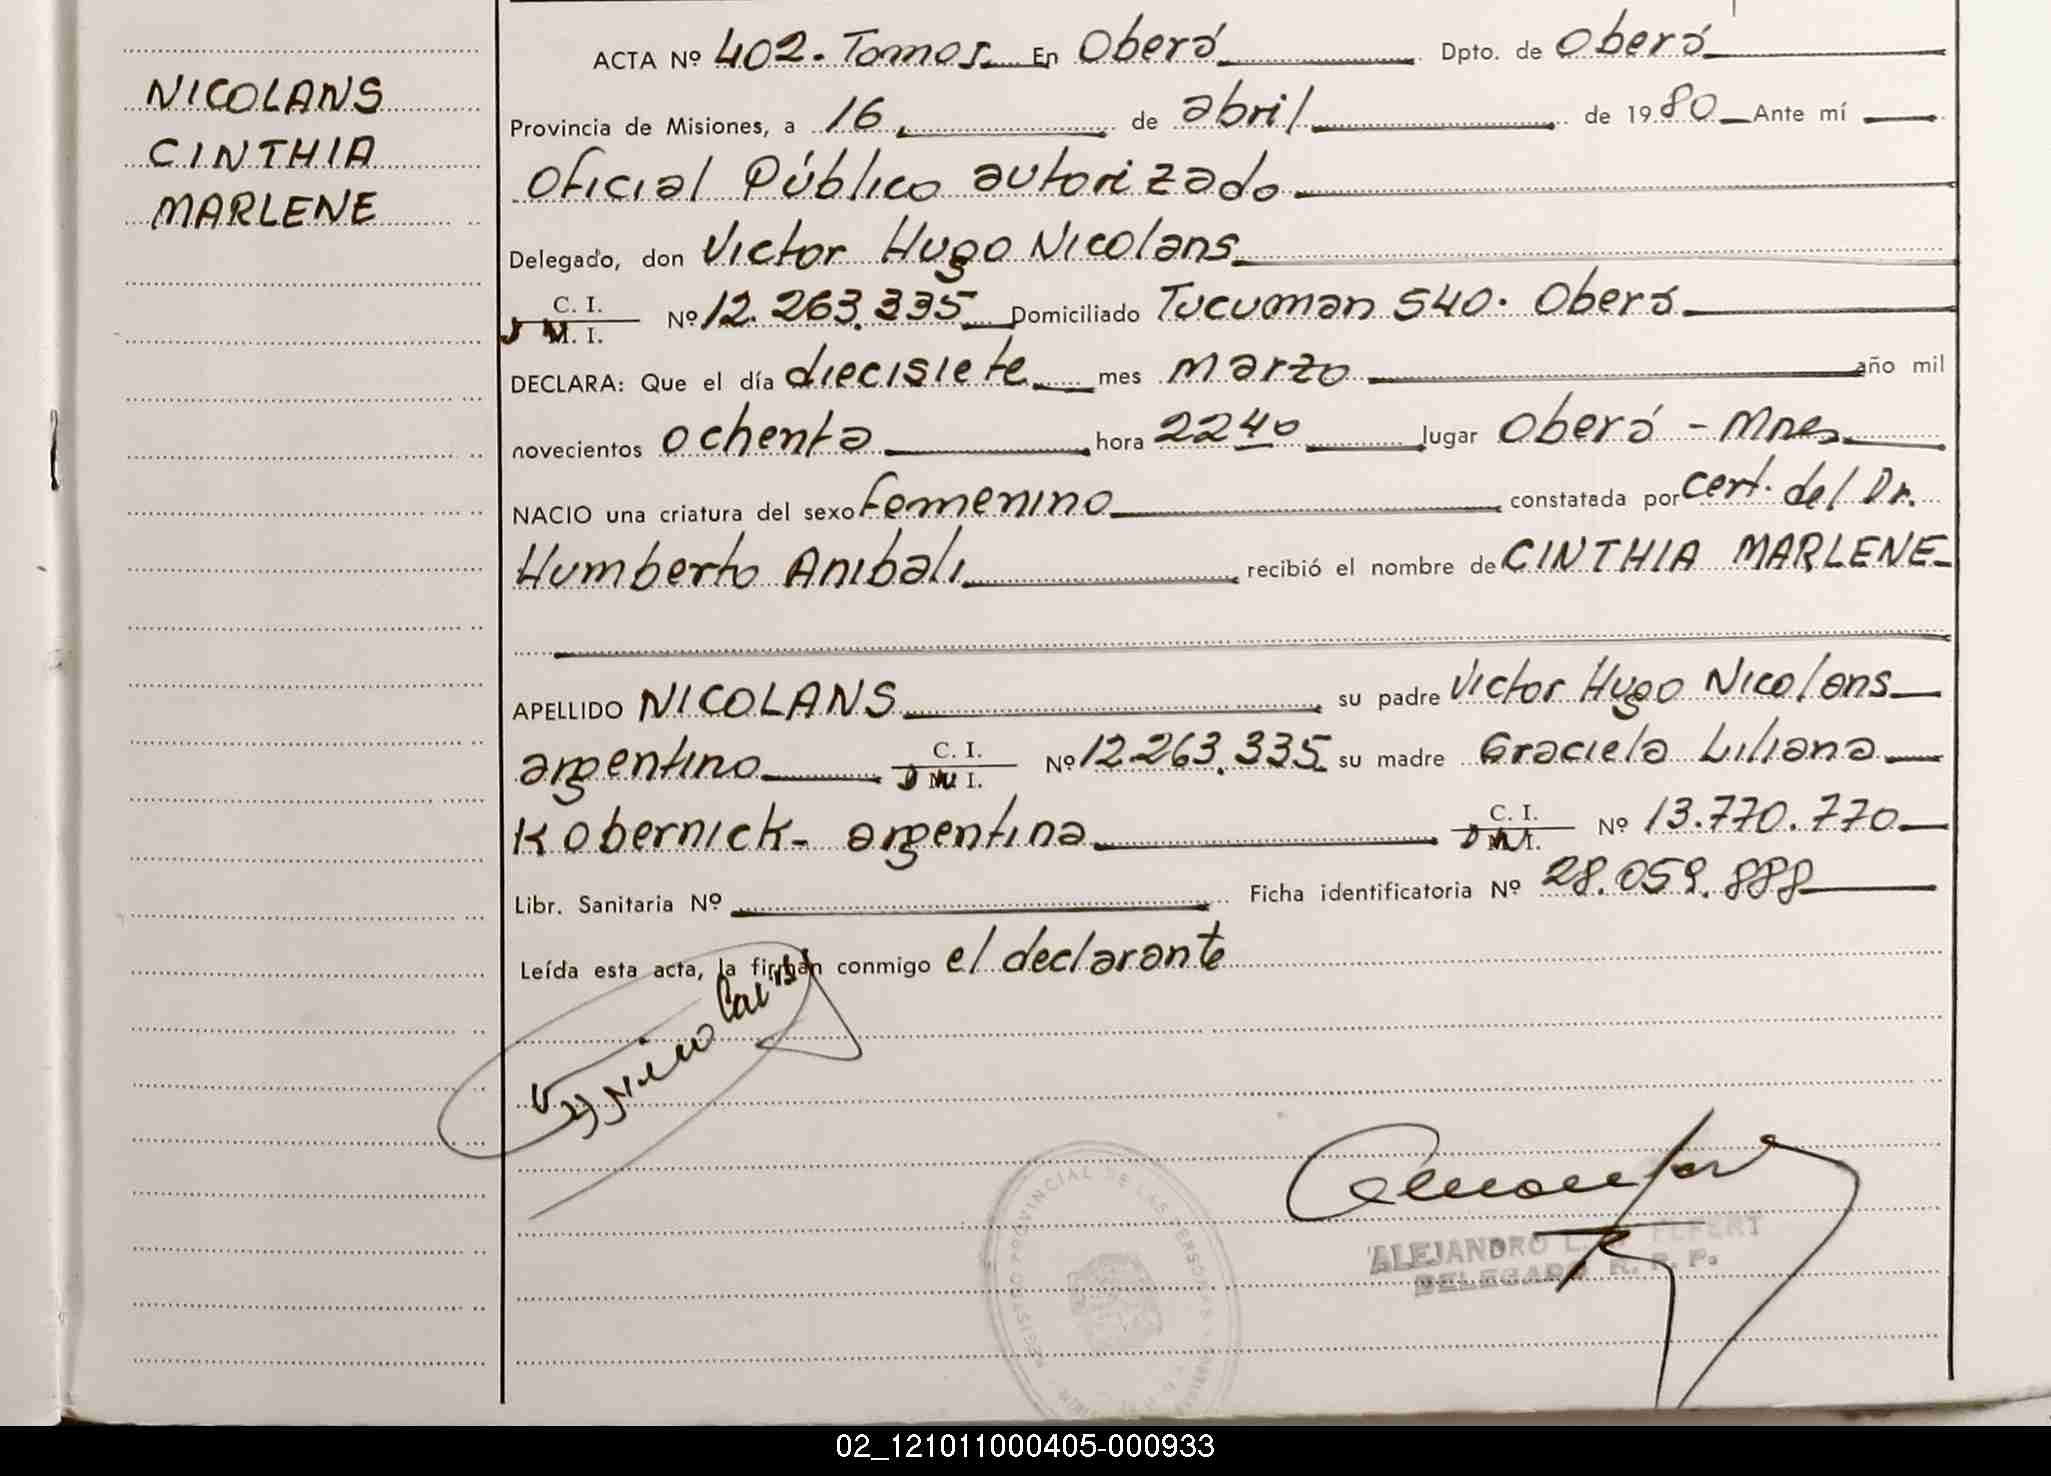 NICOLANS
CINTHIA
MARLENE
ACTA Nº 402. Tomo I En Oberá Dpto. de Oberá
Provincia de Misiones, a 16 de abril de 1980 Ante mí
Oficial Público autorizado
Delegado, don Victor Hugo Nicolans
C. I.
M. I. Nº 12.263.335 Domiciliado Tucuman 540. Oberá
DECLARA: Que el día diecisiete mes marzo año mil
novecientos ochenta hora 2240 lugar Oberá - Mnes
NACIO una criatura del sexo femenino constatada por cert. del Dr.
Humberto Anibali recibió el nombre de CINTHIA MARLENE
APELLIDO NICOLANS su padre Victor Hugo Nicolans
argentino C. I. D M I. Nº 12.263.335 su madre Graciela Liliana
Kobernick - argentina C. I. D M I. Nº 13.770.770
Libr. Sanitaria Nº Ficha identificatoria Nº 28.059.888
Leída esta acta, la firman conmigo el declarante
REGISTRO PROVINCIAL DE LAS PERSONAS
ALEJANDRO L.
DELEGADO R. P. P.
02_121011000405-000933